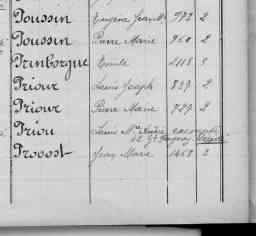 Poussin Eugène Jean 972 2
Poussin Pierre Marie 960 2
Prinborgne Emile 1118 3
Prioux Louis Joseph 839 2
Prioux Pierre Marie 729 2
Priou Louis Mie
Provost Jean Marie 1468 2